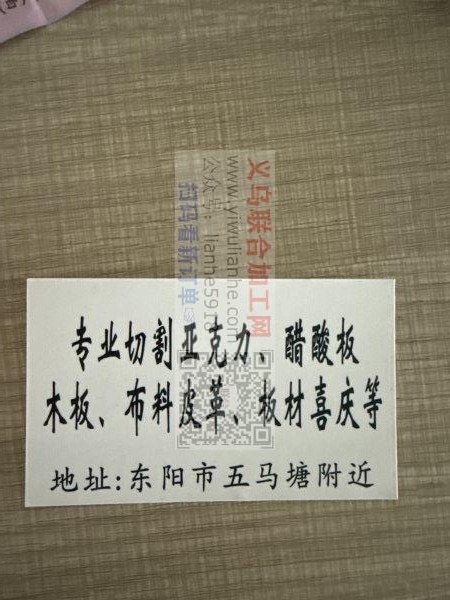 专业切割亚克力、醋酸板
木板、布料皮革、板材喜庆等
地址:东阳市五马塘附近
义乌联合加工网
www.yiwulianhe.com
公众号:lianhe5918
扫码看新订单